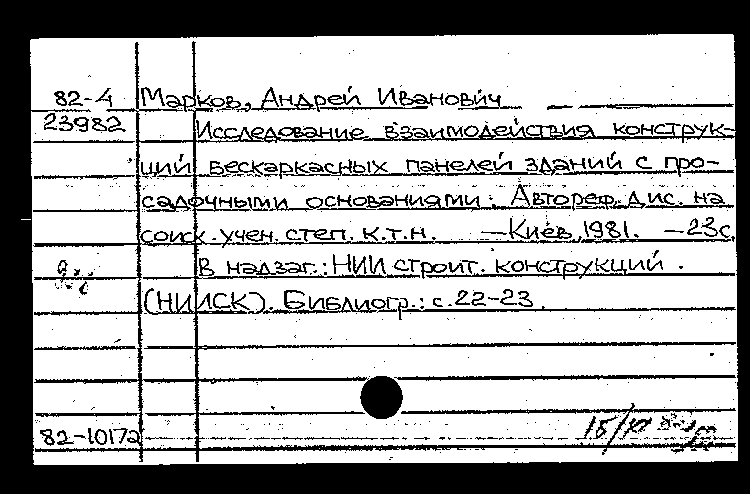 82-4 Марков, Андрей Иванович
23982 Исследование взаимодействия конструк-
ций бескаркасных панелей зданий с про-
садочными основаниями: Автореф. дис. на
соиск. учен. степ. к.т.н. — Киев, 1981. — 23с.
В надзаг.: НИИ строит. конструкций.
(НИИСК). Библиогр.: с. 22-23.
82-10172